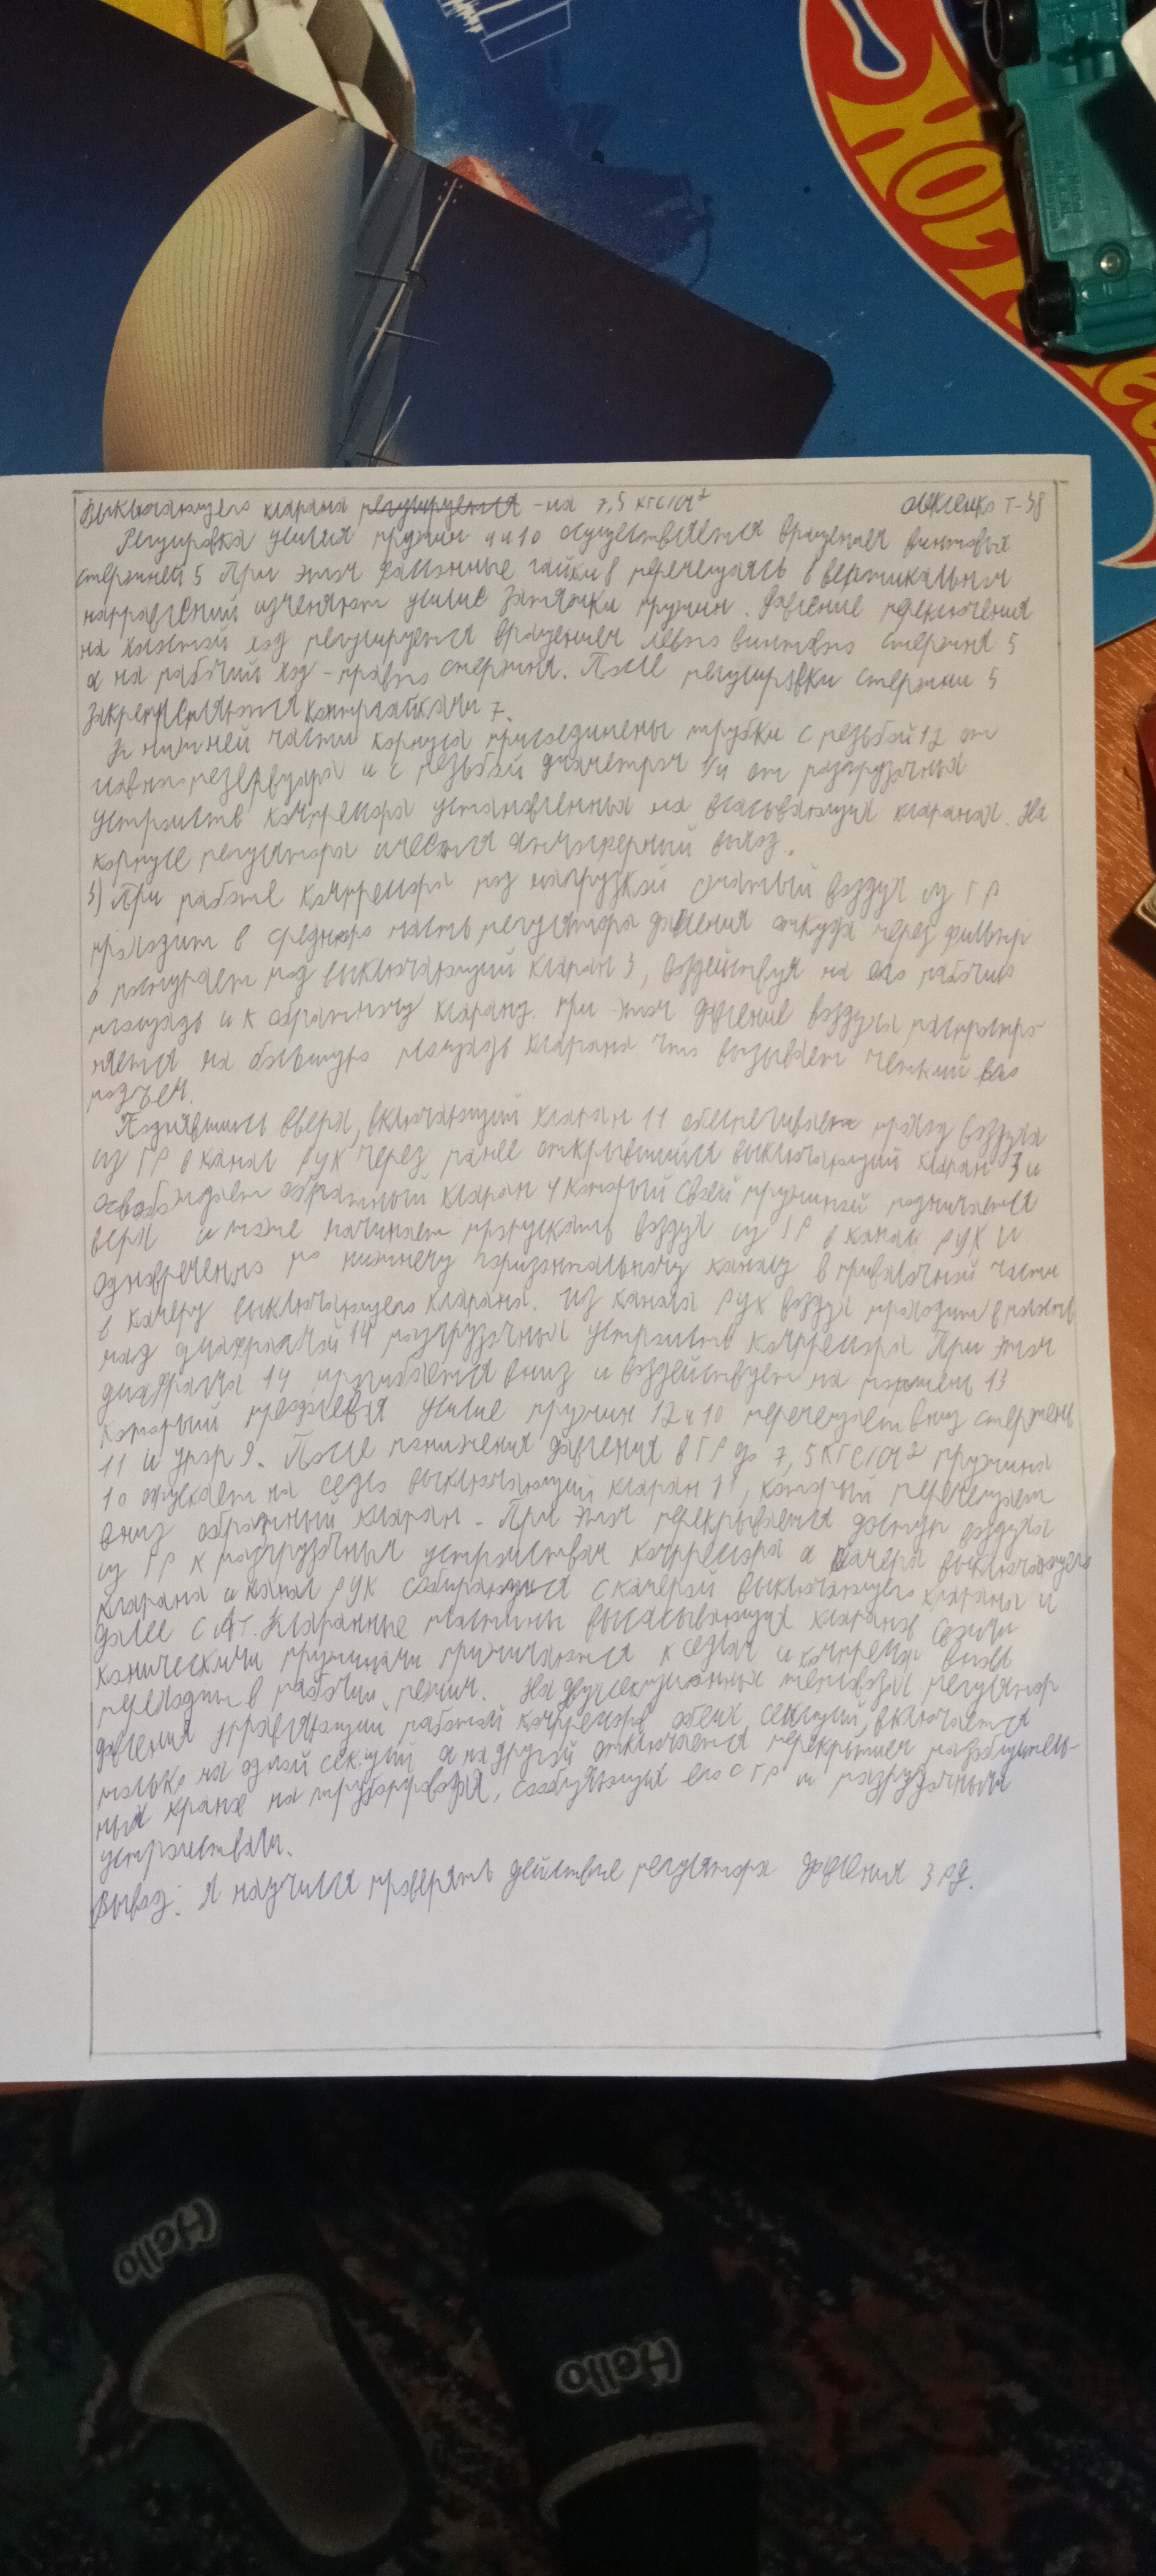 HOT
выключающего клапана регулируется - на 7,5 кгс/см²
Т-38
Регулировка усилия пружин 4 и 10 осуществляется вращением винтовых
стержней 5 При этом гайки 8 перемещаясь в вертикальном
направлений изменяют усилие затяжки пружин. Давление
на холостой ход регулируется вращением левого винтового стержня 5
а на рабочий ход - правого стержня. После регулировки стержни 5
закрепляются контргайками 7.
К нижней части корпуса присоединены трубки с резьбой 12 от
резервуара и с резьбой диаметром 1/4 от разгрузочных
устройств компрессора установленных на всасывающих клапанах. На
корпусе регулятора имеется атмосферный выход.
3) При работе компрессора под нагрузкой сжатый воздух из ГР
проходит в среднюю часть регулятора давления откуда через фильтр
поступает под выключающий клапан 3, воздействуя на его рабочую
площадь и к обратному клапану. при этом давление воздуха распростра-
няется на большую площадь клапана что вызывает четкий его
подъем.
Поднявшись вверх, включающий клапан 11 обеспечивает проход воздуха
из ГР в канал РУК через ранее открывшийся выключающий клапан 3 и
освобождает обратный клапан 4 который своей пружиной поднимается
верх и тоже начинает пропускать воздух из ГР в канал РУК и
одновременно по нижнему горизонтальному каналу в привалочной части
в камеру выключающего клапана. Из канала РУК воздух проходит в полость
над диафрагмой 14 разгрузочных устройств компрессора При этом
диафрагма 14 прогибается вниз и воздействует на поршень 13
который преодолевая усилие пружин 12 и 10 перемещает вниз стержень
11 и упор 9. После понижения давления в ГР до 7,5 кгс/см² пружина
10 опускает на седло выключающий клапан 11, который перемещает
вниз обратный клапан. При этом перекрывается доступ воздуха
из ГР к разгрузочным устройствам компрессора а камера выключающего
клапана и канал РУК с камерой выключающего клапана и
далее с Ат. Клапанные пластины всасывающих клапанов своими
коническими пружинами прижимаются к седлам и компрессор вновь
переходит в рабочий режим. На двухсекционных тепловозах регулятор
давления управляющий работой компрессоров обеих секций, включается
только на одной секций а на другой отключается перекрытием разобщитель-
ных кранов на трубопроводах, сообщающих его с ГР и разгрузочными
устройствами.
Вывод: Я научился проверять действие регулятора давления 3РД.
Hello
Hello